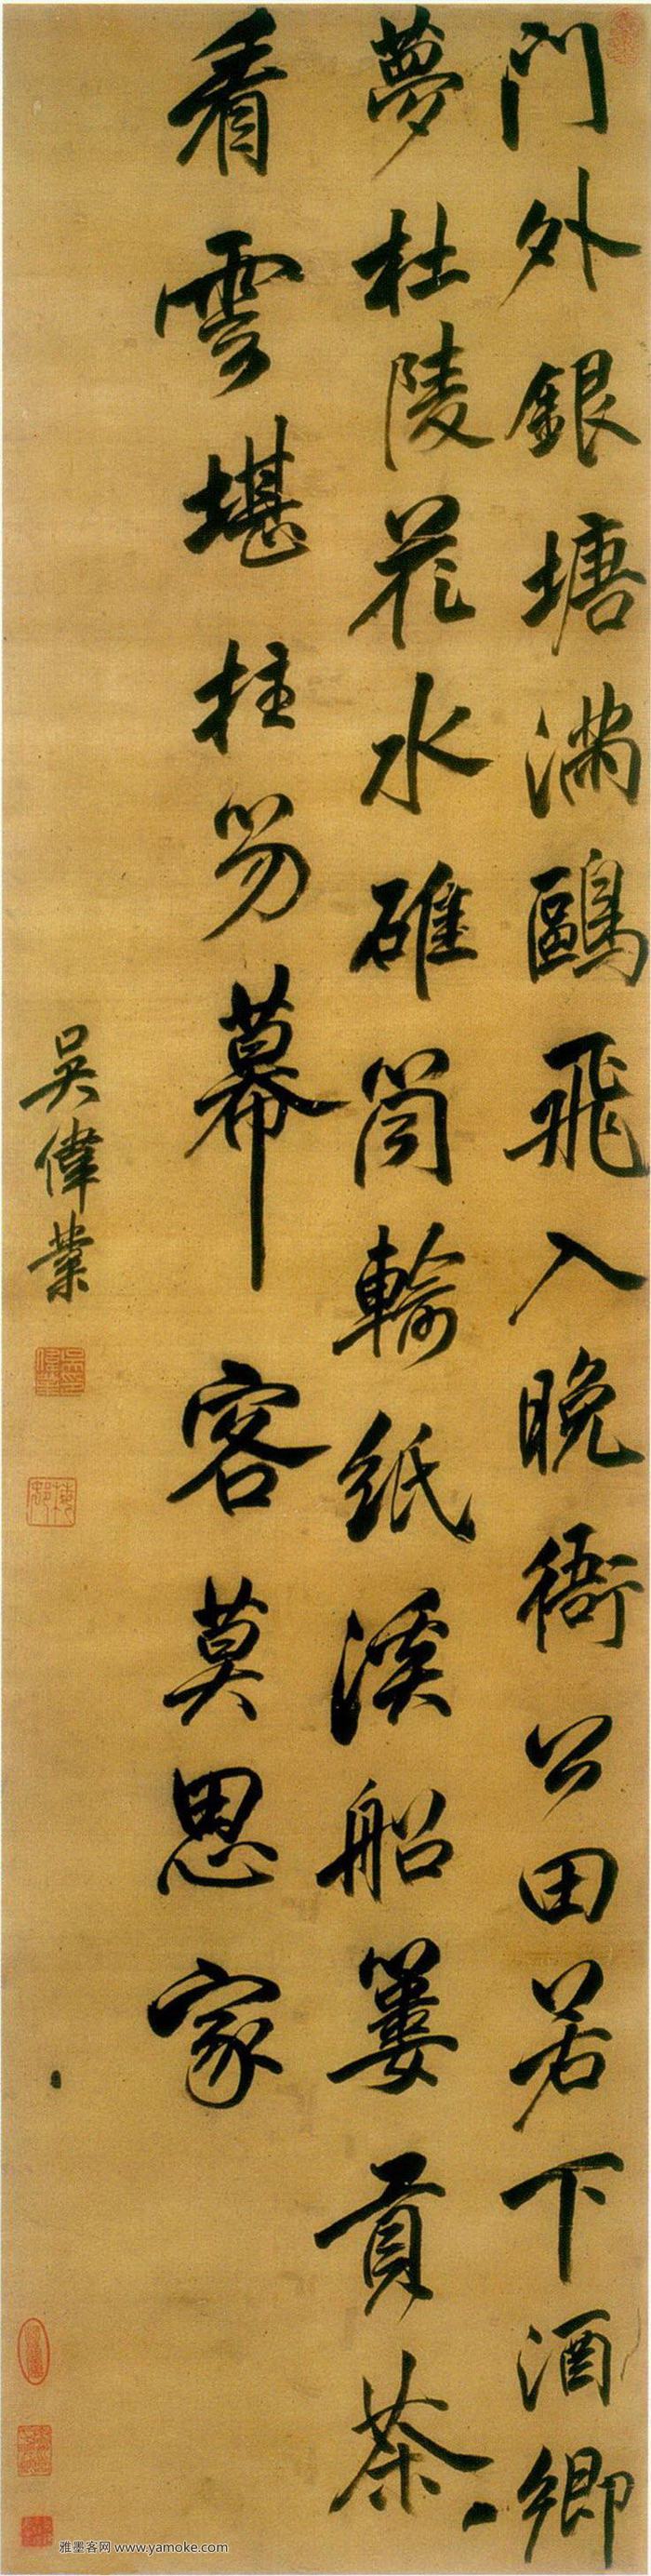 門外銀塘滿鷗飛入晚衙公田若下酒鄉
夢杜陵花水碓筒輪紙溪船簍貢茶
看雲堪拄笏幕客莫思家
吳偉業
梅村
雅墨客网 www.yamoke.com